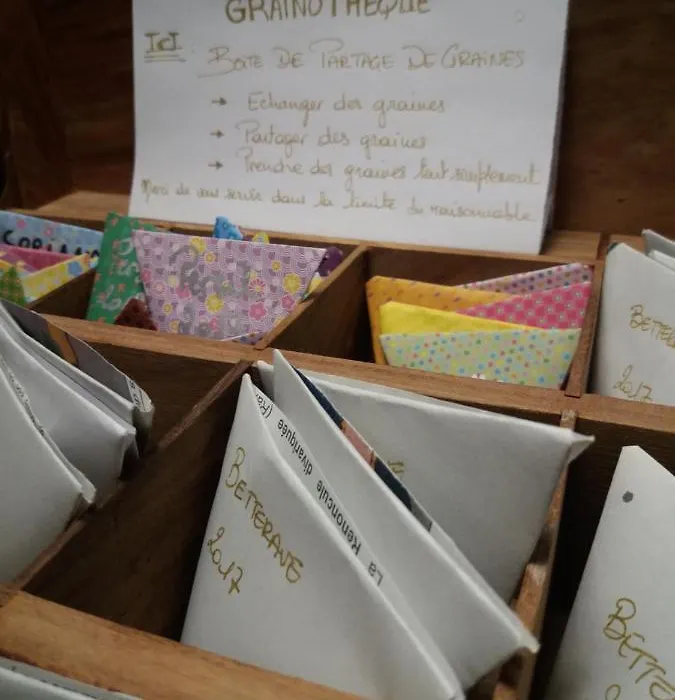 GRAINOTHEQUE
ICI
BOITE DE PARTAGE DE GRAINES
→ Echanger des graines
→ Partager des graines
→ Prendre des graines tout simplement
Merci de vous servir dans la limite du raisonnable
BETTERAVE
2017
La Renoncule divariquée
BETTERAVE
2017
BETTE